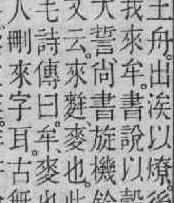 王舟出涘以燎後
我來牟書說以穀
大誓尚書旋機鈐
又云來麰麥也
毛詩傳曰牟麥也
人刪來字耳古無